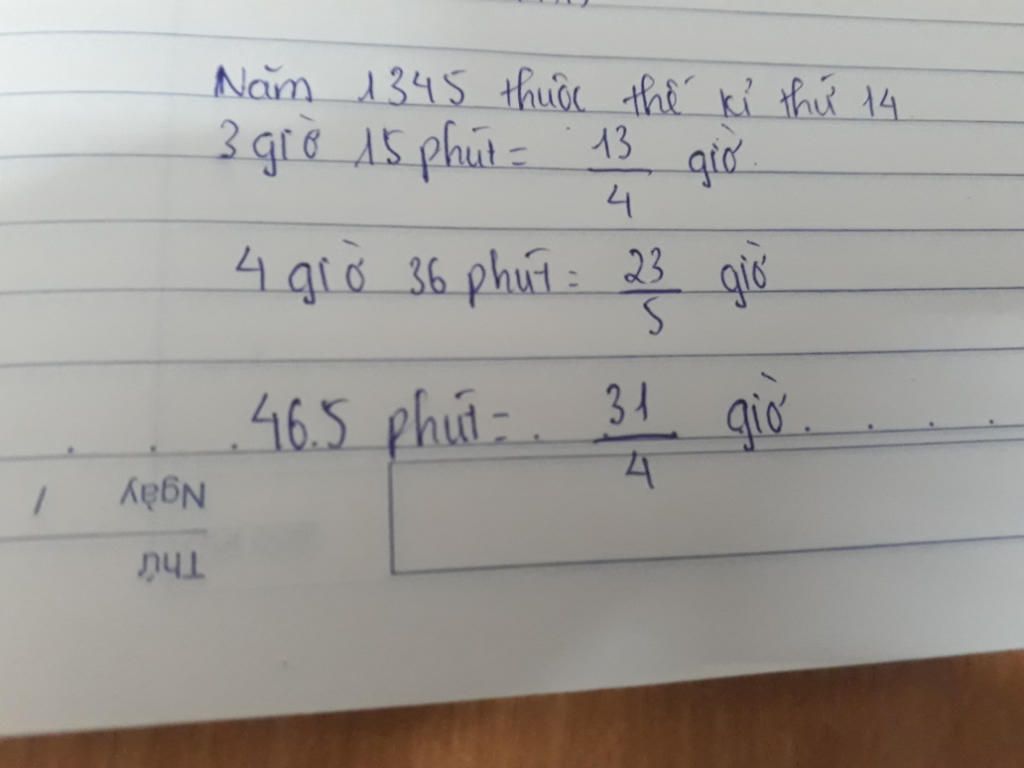 Năm 1345 thuộc thế kỉ thứ 14
3 giờ 15 phút = 13/4 giờ.
4 giờ 36 phút = 23/5 giờ
46.5 phút = 31/4 giờ
Ngày /
Thứ